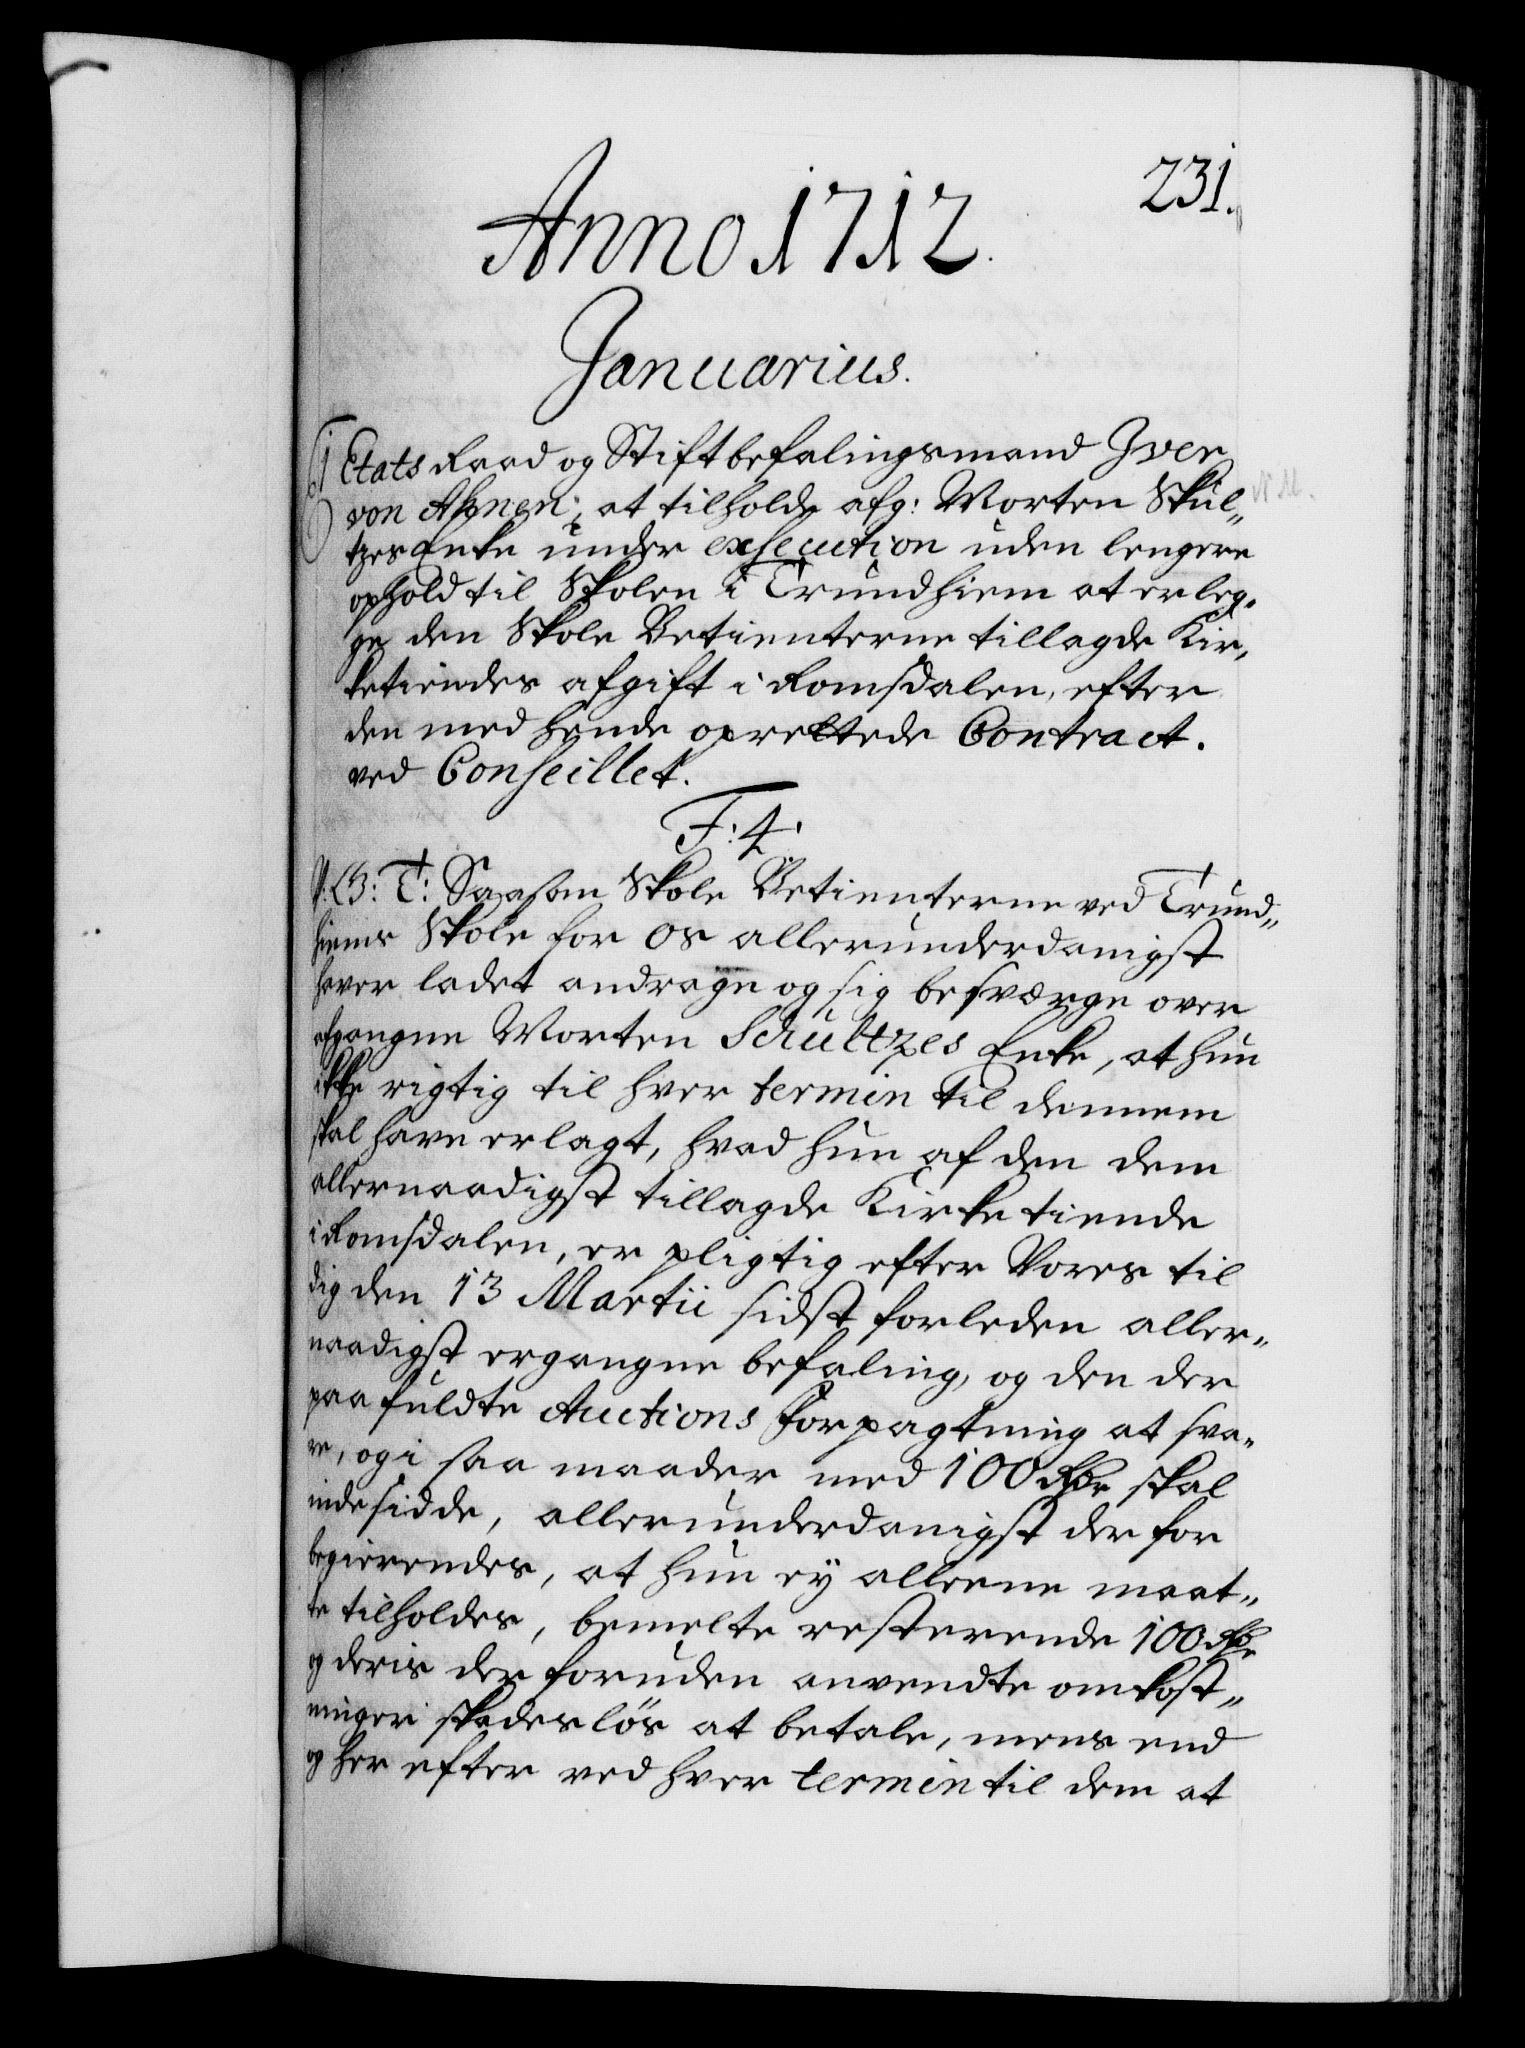 231.
Anno 1712.
Januarius.
Etats Raad og Stiftbefalingsmand Iver
von Ahnen; at tilholde afg: Morten Skul„
tzes Enke under exsecution uden lengere
ophold til Skolen i Trundhiem at erleg„
ge den Skole Betienterne tillagde Kir„
ketiendes afgift i Romsdalen, efter
den med hende oprettede Contract.
ved Conseillet.
F: 4.
V: G: T: Saasom Skole Betienterne ved Trund„
hiems Skole for os allerunderdanigst
haver ladet andrage og sig besværge over
afgangne Morten Schultzes Enke, at hun
ikke rigtig til hver termin til dennem
skal have erlagt, hvad hun af den dem
allernaadigst tillagde Kirke tiende
i Romsdalen, er pligtig efter Vores til
dig den 13 Martii sidst forleden aller„
naadigst ergangne befaling, og den der
paa fuldte Auctions Forpagtning at sva„
re, og i saa maader med 100 Rdr skal
indesidde, allerunderdanigst der for
begierendes, at hun ey alleene maat„
te tilholdes, bemelte resterende 100 Rdr
og deris der foruden anvendte omkost„
ninger skadesløs at betale, mens end
og her efter ved hver termin til dem at